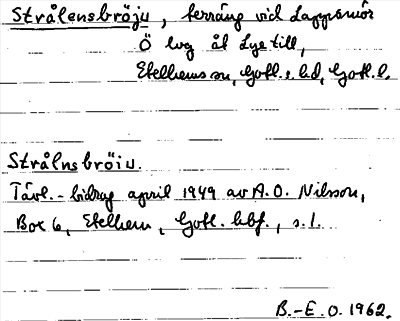 Strålensbröju, terräng vid Lappsmör
Ö log åt Lye till,
Etelhems sn, Gotl. s. hd, Gotl. l.
Strålnsbröiu.
Tävl.-bidrag april 1949 av A.O. Nilsson,
Box 6, Etelhem, Gotl. hbf., s. 1.
B.-E. O. 1962.